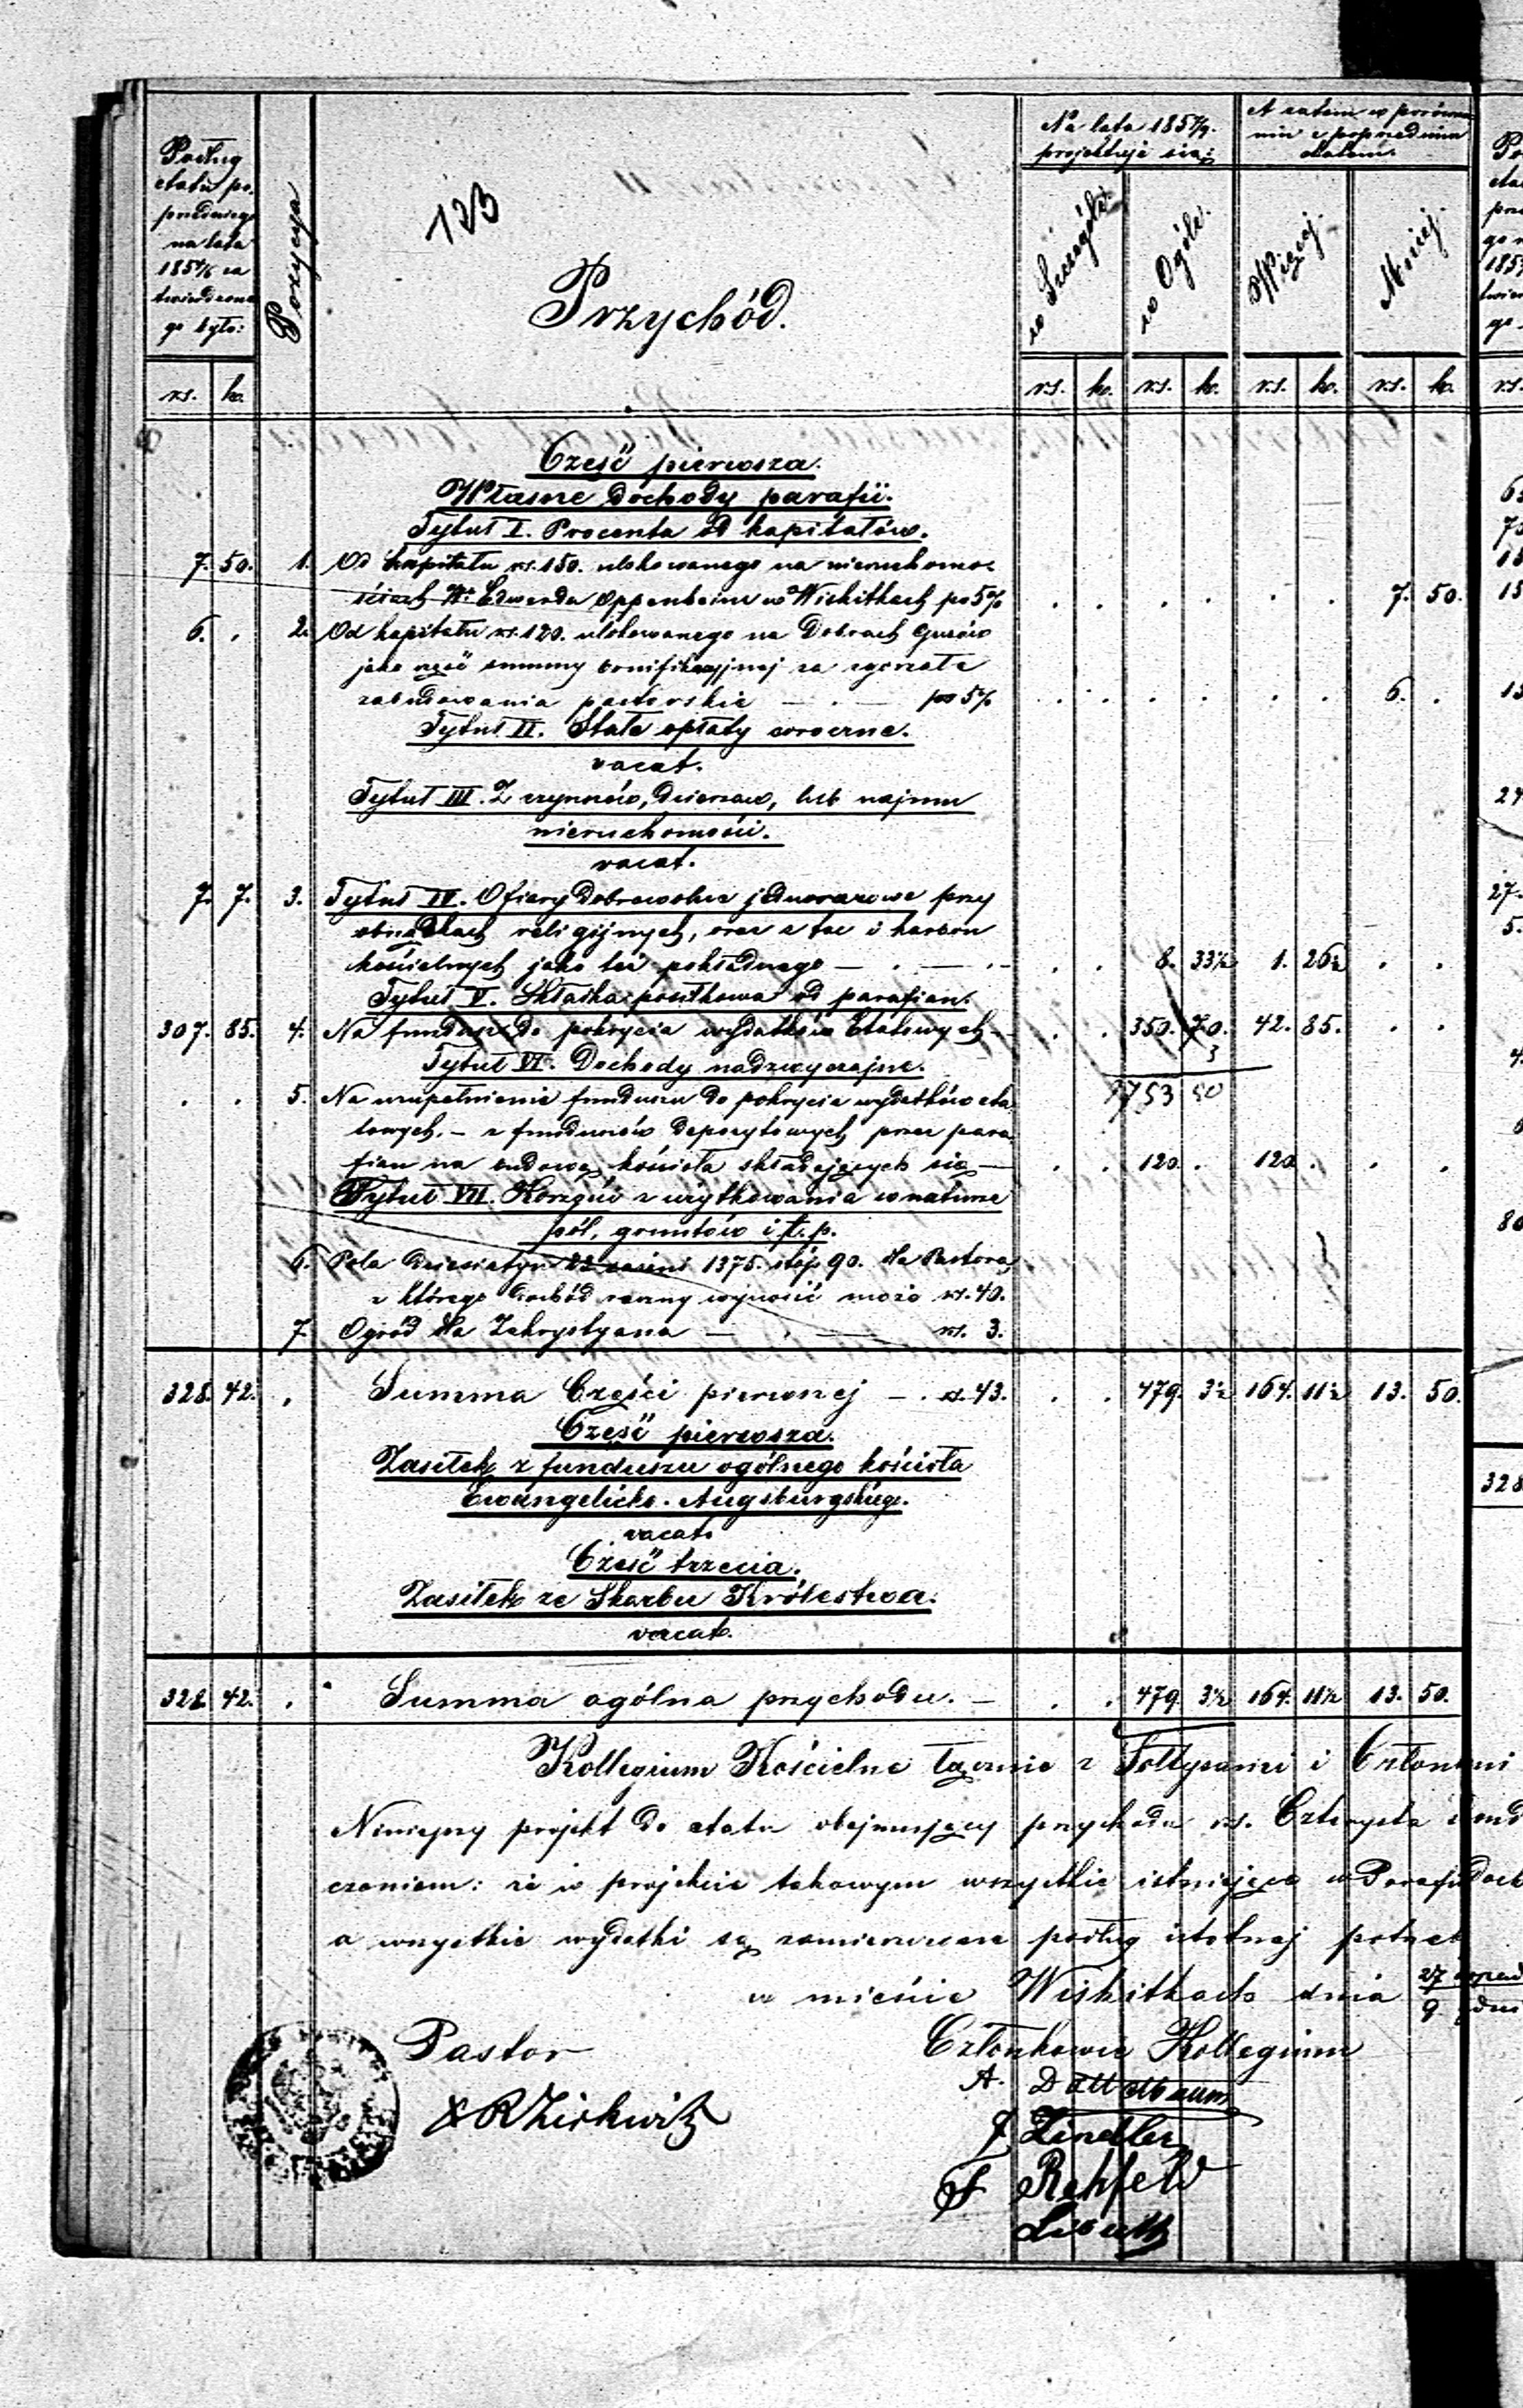 Podług
etatu po-
przedniego
na lata
185 4/6 za
twierdzone
go było:
rs. ko.
Pozycya
123
Przychód.
Na lata 185 7/9.
projektuje się:
w Szczególe.
w Ogóle.
rs. ko. rs. ko.
A zatem w porówna
niu z poprzednim
etatem.
Więcej.
Mniej.
rs. ko. rs. ko.
Część pierwsza.
Własne dochody parafii.
Tytuł I. Procenta od kapitałów.
7. 50. 1. Od kapitału rs. 150. ulokowanego na nieruchomo-
ściach Wo Edwarda Oppenheim w Wiskitkach po 5% 7. 50.
6. . 2. Od kapitału rs. 120. ulokowanego na Dobrach Guzów
jako część summy bonifikacyjnej za zgorzałe
zabudowania pastorskie — . — po 5% 6. .
Tytuł II. Stałe opłaty coroczne.
vacat.
Tytuł III. Z czynszów, dzierzaw, lub najmu
nieruchomości.
vacat.
7. 7. 3. Tytuł IV. Ofiary dobrowolne jednorazowe przy
obrządkach religijnych, oraz z tac i karbon
kościelnych jako też pokładnego — . — . 8. 33½ 1. 26½ . .
Tytuł V. Składka posiłkowa od parafian.
307. 85. 4. Na fundusz do pokrycia wydatków Etatowych — . . 350. 70. 42. 85. . .
Tytuł VI. Dochody nadzwyczajne.
753 50
. . 5. Na uzupełnienie funduszu do pokrycia wydatków eta
towych, — z funduszów depozytowych przez para
fian na budowę kościoła składających się — . . 120. . 120. . . .
Tytuł VII. Korzyści z użytkowania w naturze
pól, gruntów i t. p.
6. Pola dziesiatyn 1375. stóp 90. dla Pastora,
z którego dochód roczny wynosić może rs. 40.
7. Ogród dla Zakrystyana — . — rs. 3.
328. 42. . Summa Części pierwszej — . rs. 43. . . 479. 3½ 164. 11½ 13. 50.
Część pierwsza.
Zasiłek z funduszu ogólnego kościoła
Ewangelicko-Augsburgskiego.
vacat.
Część trzecia.
Zasiłek ze Skarbu Królestwa.
vacat.
328. 42. . Summa ogólna przychodu. — . . 479. 3½ 164. 11½ 13. 50.
Kollegium Kościelne łącznie z Sołtysami i Członkami
Niniejszy projekt do etatu obejmujący przychodu rs. Czterysta
czeniem: że w projekcie takowym wszystkie istniejące w Parafii doch
a wszystkie wydatki są zamieszczone podług istotnej potrzeb
w mieście Wiskitkach dnia 27/9
Pastor
Członkowie Kollegium
A. Dattelbaum
J. Zindler
F Rehfeld